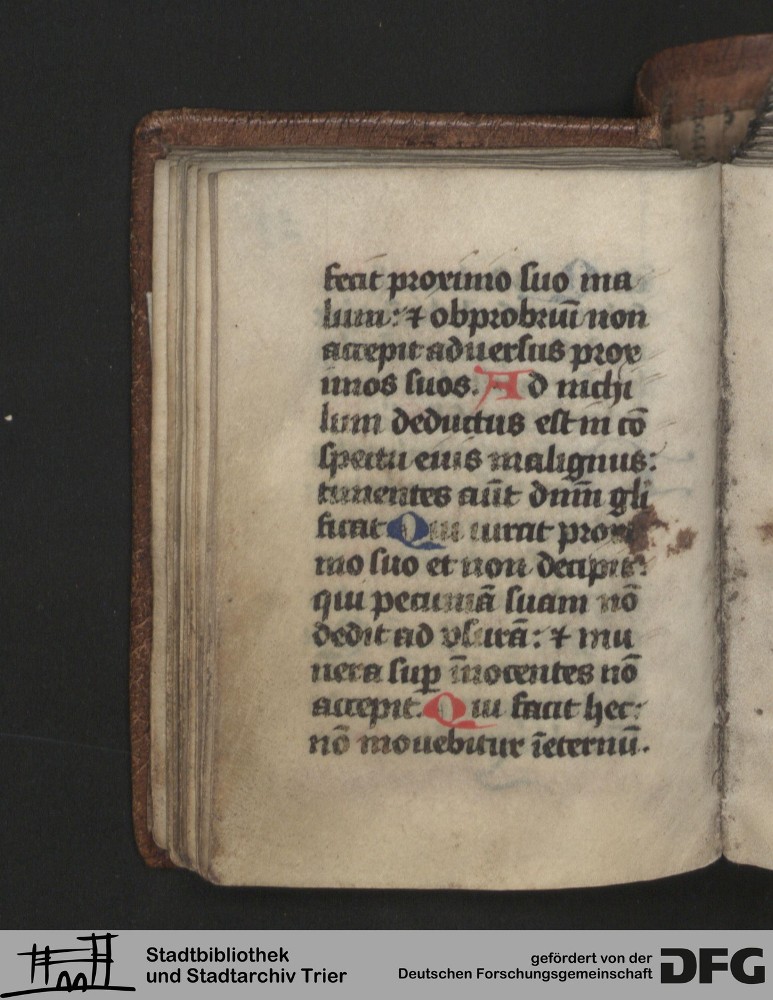 fecit proximo suo ma
lum: ⁊ obprobriū non
accepit aduersus prox
imos suos. Ad nichi
lum deductus est in cō
spectu eius malignus:
timentes aūt dn̄m gli
ficat Qui iurat proxi
mo suo et non decipit:
qui pecuniā suam nō
dedit ad vsurā: ⁊ mu
nera suꝑ īnocentes nō
accepit. Qui facit hec:
nō mouebitur īeternū.
Stadtbibliothek
und Stadtarchiv Trier
gefördert von der
Deutschen Forschungsgemeinschaft
DFG